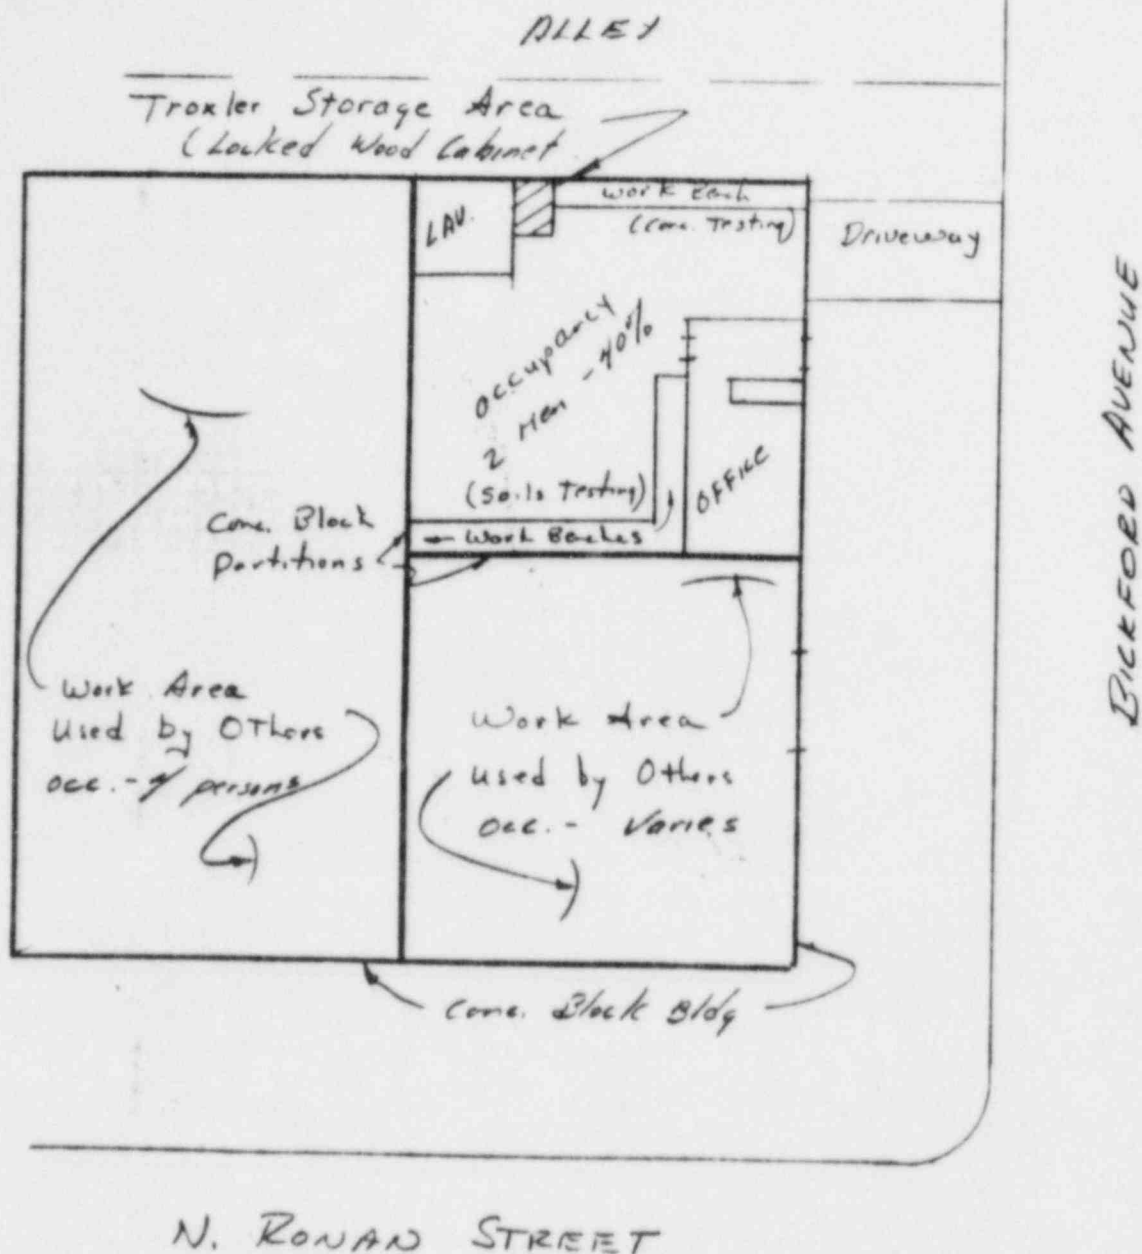 ALLEY
Troxler Storage Area
(Locked Wood Cabinet
Work Bench
(Conc. Testing)
LAV.
Driveway
Occupancy
2 Men - 40%
(Soils Testing)
OFFICE
Work Benches
Conc. Block
Partitions
BICKFORD AVENUE
Work Area
Used by Others
Occ. - 4 persons
Work Area
Used by Others
Occ. - Varies
Conc. Block Bldg
N. RONAN STREET